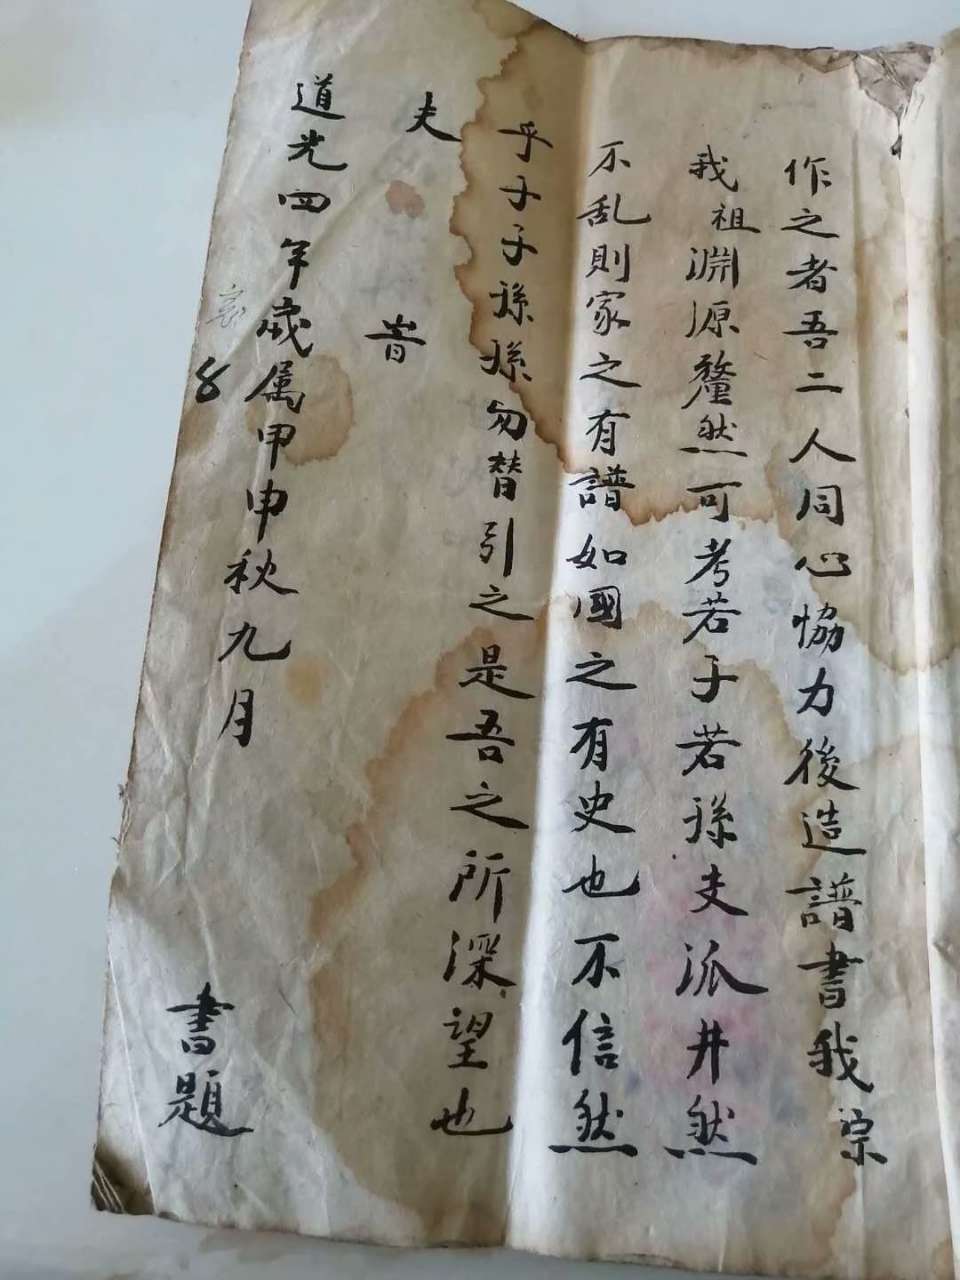 作之者吾二人同心恊力後造譜書我宗
我祖淵源釐然可考若子若孫支派井然
不乱則家之有譜如國之有史也不信然
乎子子孫孫勿替引之是吾之所深望也
夫 旹
道光四年歲属甲申秋九月 書題